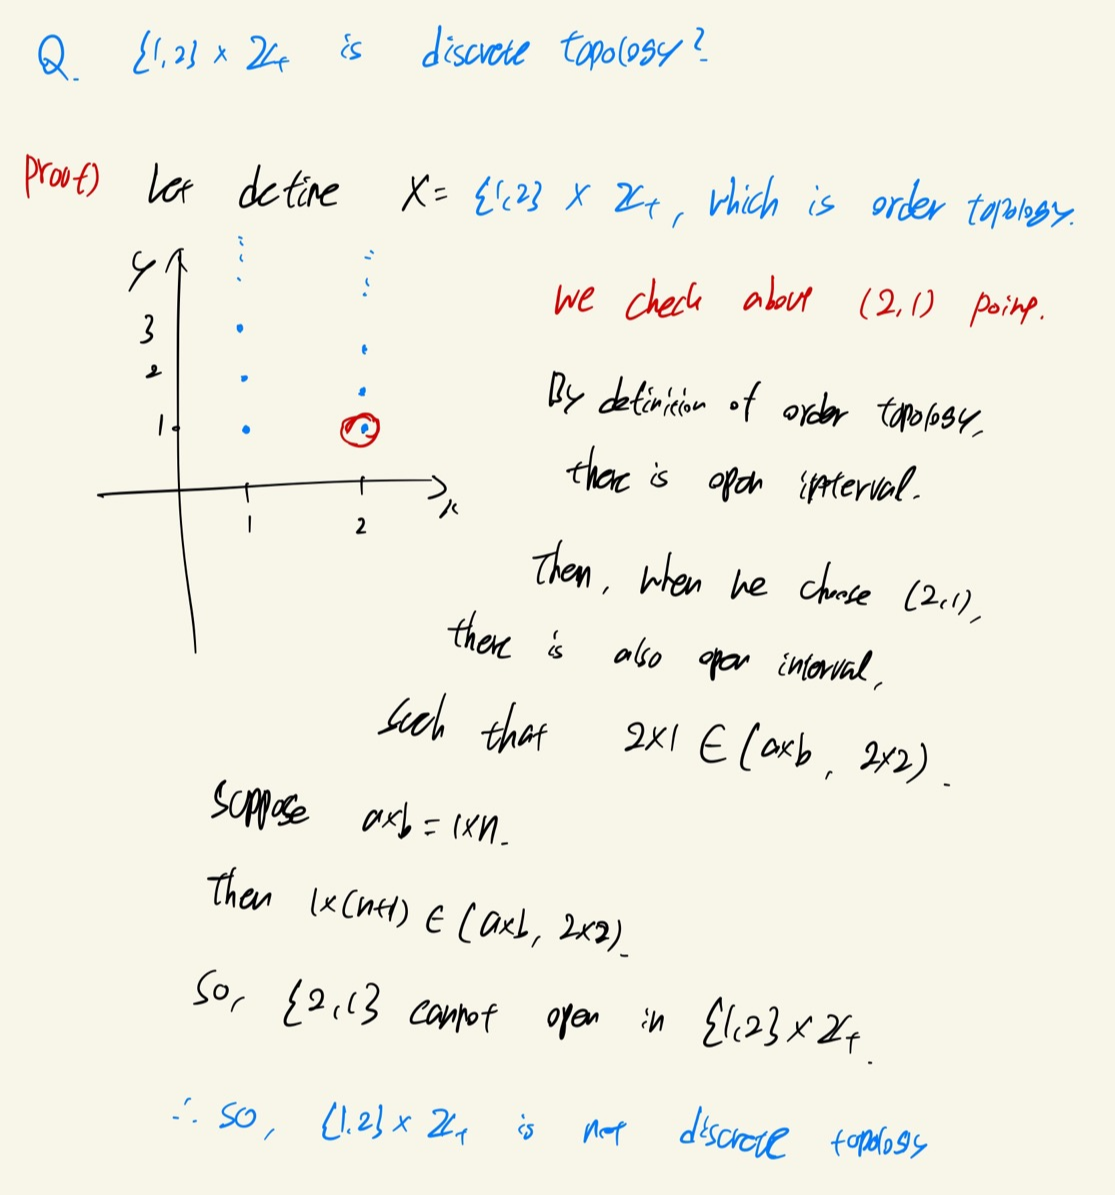 Q. {1,2} × ℤ₊ is discrete topology?
proof) Let define X = {1,2} × ℤ₊, which is order topology.
y
3
2
1
1
2
x
We check about (2,1) point.
By definition of order topology,
there is open interval.
Then, when we choose (2,1),
there is also open interval,
such that 2×1 ∈ (a×b, 2×2).
Suppose a×b = 1×n.
Then 1×(n+1) ∈ (a×b, 2×2).
So, {2,1} cannot open in {1,2} × ℤ₊.
∴ so, {1.2} × ℤ₊ is not discrete topology